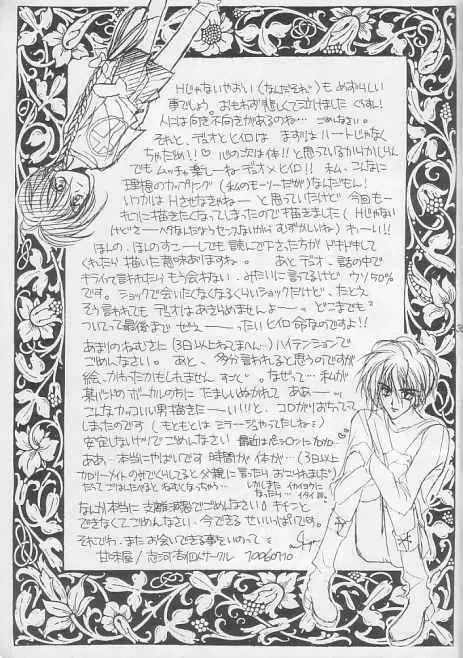 Hじゃないやおい(なんだそれ)も めずらしい
事でしょう。おもわず悲しくて泣けました くすん!
人には向き不向きがあるのね… ごめんなさい。
それと、デュオとヒイロは まずはハートじゃなく
ちゃだめ!!♡ 心の次は体!!と思っているから
でも ムッチャ楽しーね デュオ×ヒイロ!! 私、こんなに
理想のカップリング(私のモーソーだが)なんだもん!
いつかは Hさせなきゃねー と思っていたけど 今回も
描きたくなってしまったので描きました(Hじゃない
けどさ ヘタなんだようセンスないから むずかしいね)わーい!!
ほんの、ほんのすこーしでも 読んで下さった方が ドキドキして
くれたら 描いた意味ありますね。 あと デュオ、話の中で
キライって言われたら もう会わない みたいに言ってるけど ウソ50%
です。ショックで会いたくなくなるくらいショックだけど、たとえ
そう言われても デュオはあきらめませんよー どこまでも
ついてって最後まで ぜえーったい ヒイロ命なのですよ!!
あまりのねむさに(3日以上ねてまへん)ハイテンションで
ごめんなさい。あと、多分言われると思うのですが
絵、かわったかもしれません すーぐ。なぜって…私が
某バンドのボーカルの方に たましいぬかれて ああー
こんなカッコいい男描きたーい!!!と、コロがりおちてって
しまったのです(もともとは ミラージュやってたしね)
安定しないヤツで ごめんなさい 最近は
ああ、本当にやばいです 時間が 体が…(3日以上
カロリーメイトのみでくらしてると父親に言ったら おこられました)
たべてごはんしたらと ねむくなっちゃう… しかしまた イカイヨウに
なったら… イタイ
なんか本当に支離滅裂でごめんなさい。キチンと
できなくてごめんなさい、今できる せいいっぱいです。
それでわ、また お会いできる事をいのって
甘味屋/志河 個人サークル 19960910